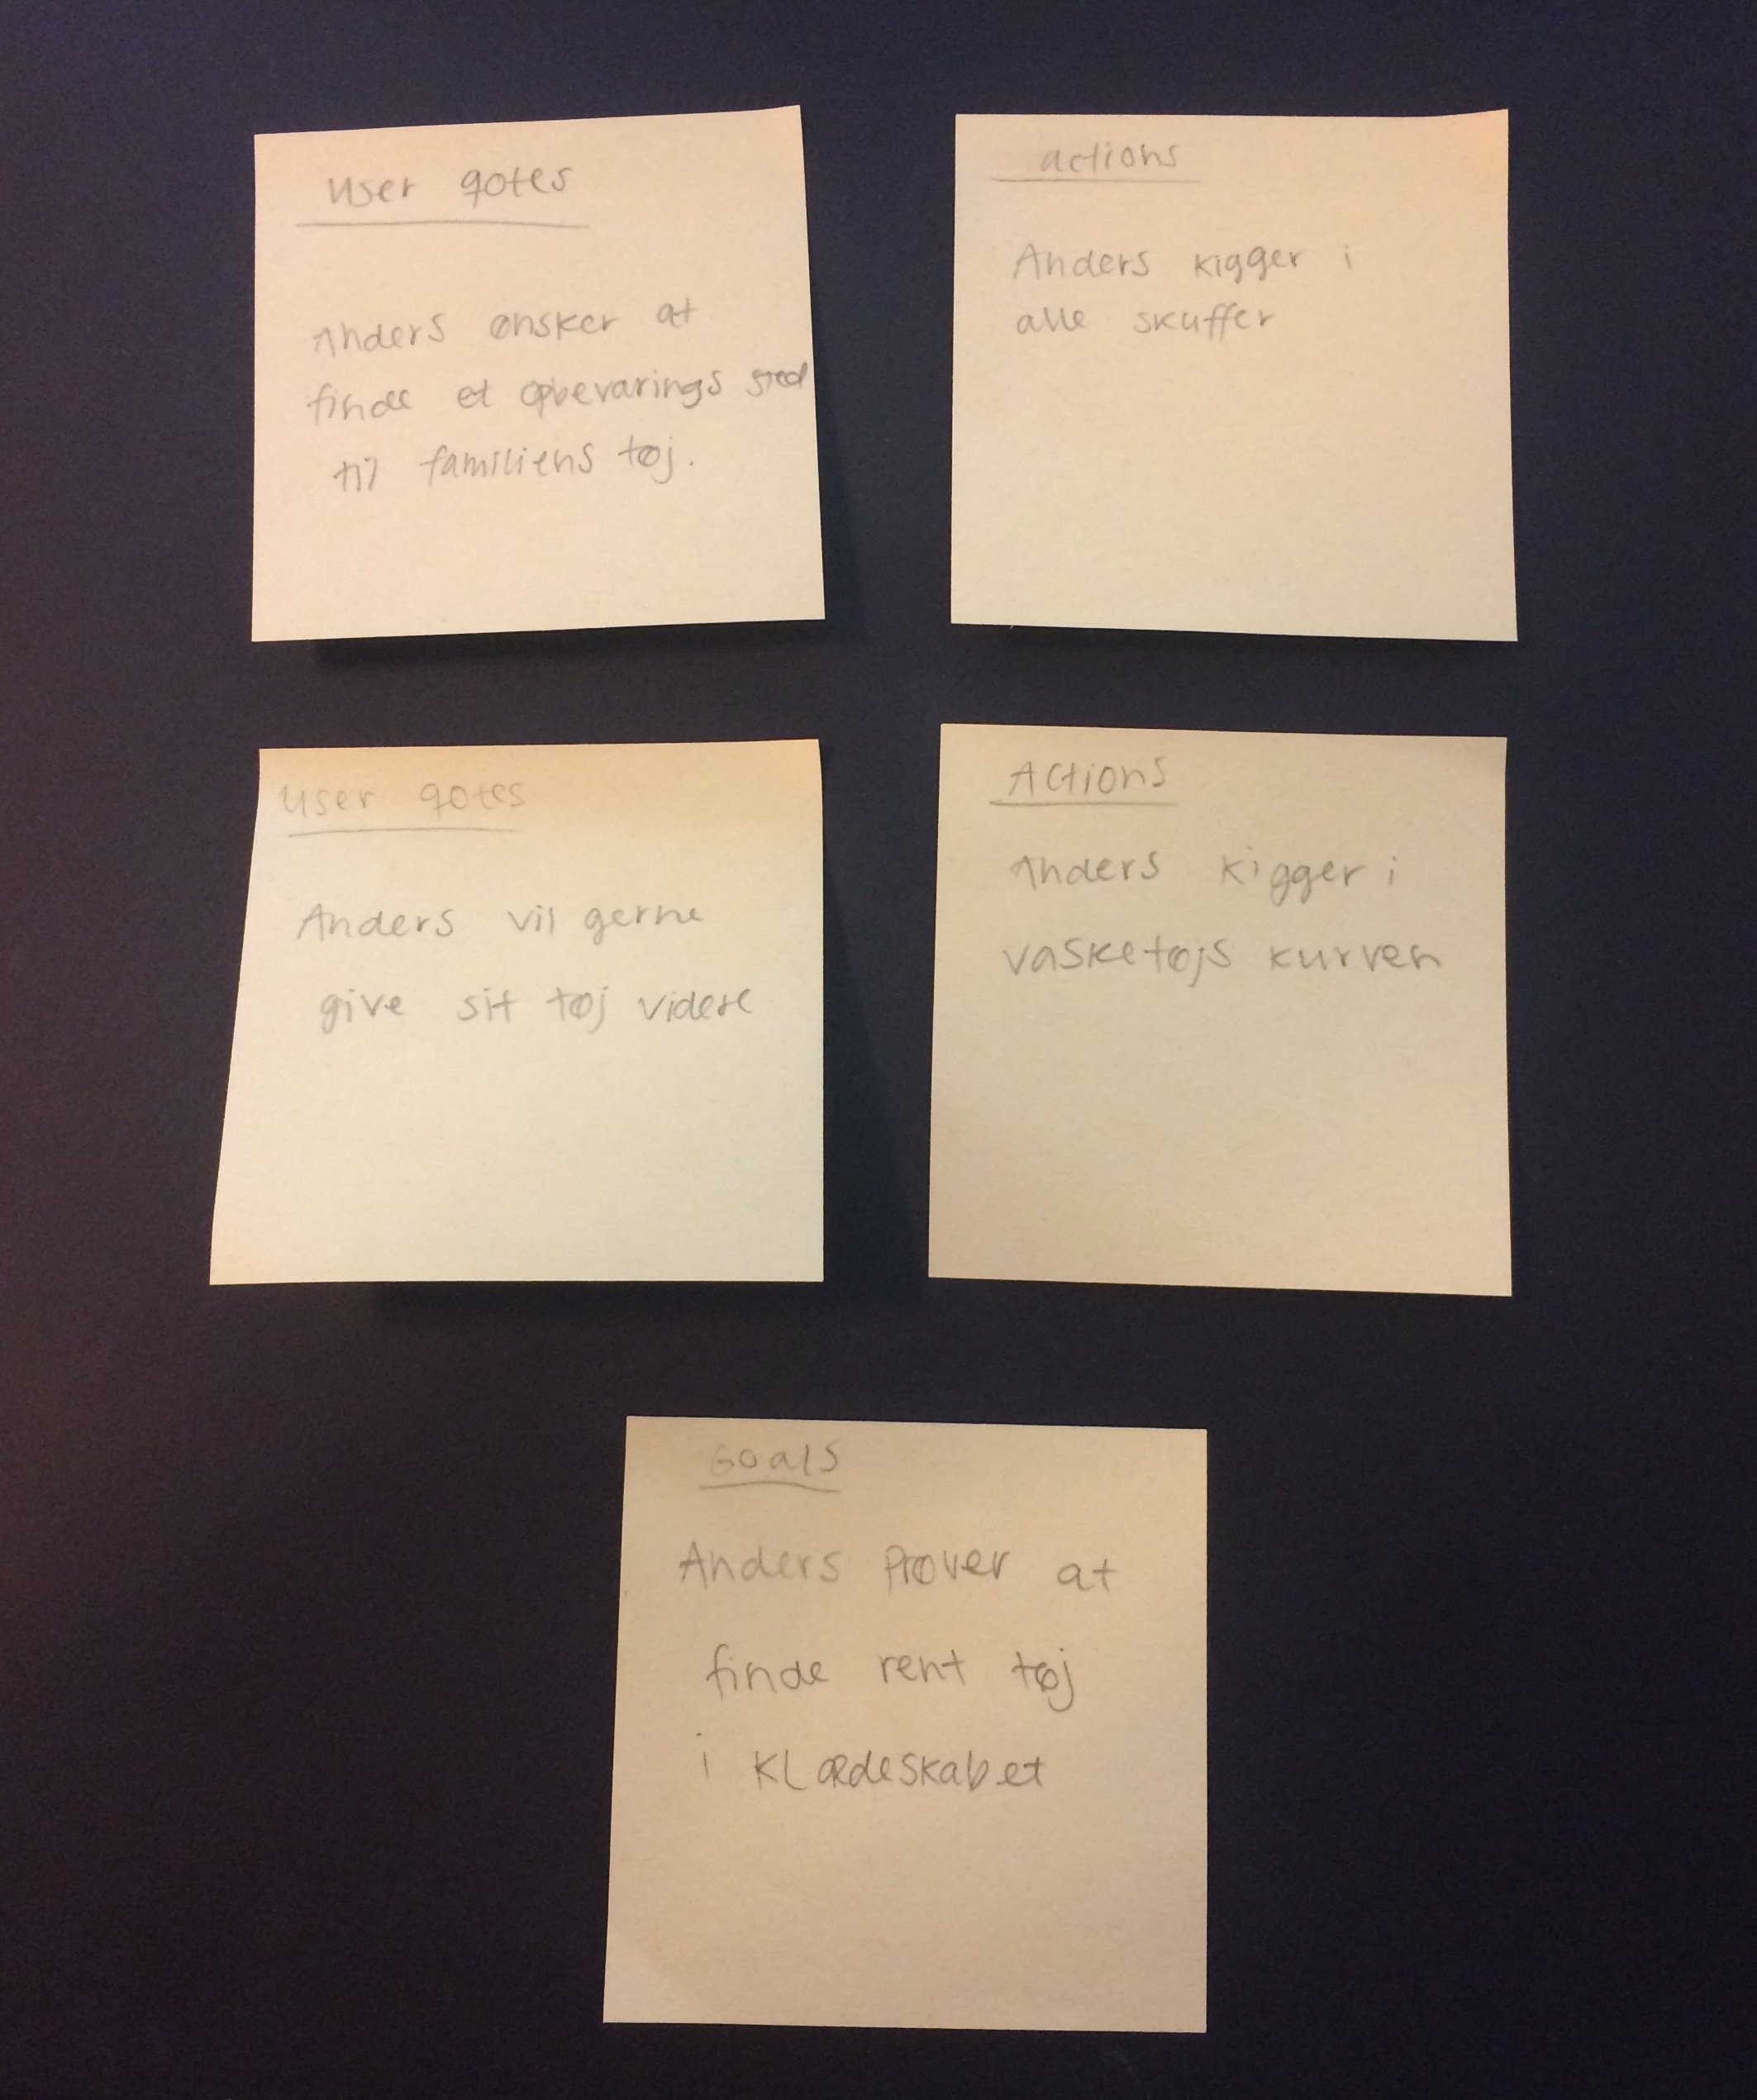 User qotes
Anders ønsker at
finde et opbevarings sted
til familiens tøj.
actions
Anders kigger i
alle skuffer
User qotes
Anders vil gerne
give sit tøj videre
Actions
Anders kigger i
vasketøjs kurven
Goals
Anders prøver at
finde rent tøj
i klædeskabet